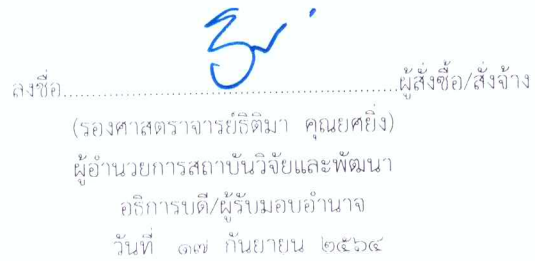 ลงชื่อ......................................................ผู้สั่งซื้อ/สั่งจ้าง
(รองศาสตราจารย์ธิติมา คุณยศยิ่ง)
ผู้อำนวยการสถาบันวิจัยและพัฒนา
อธิการบดี/ผู้รับมอบอำนาจ
วันที่ ๑๗ กันยายน ๒๕๖๔